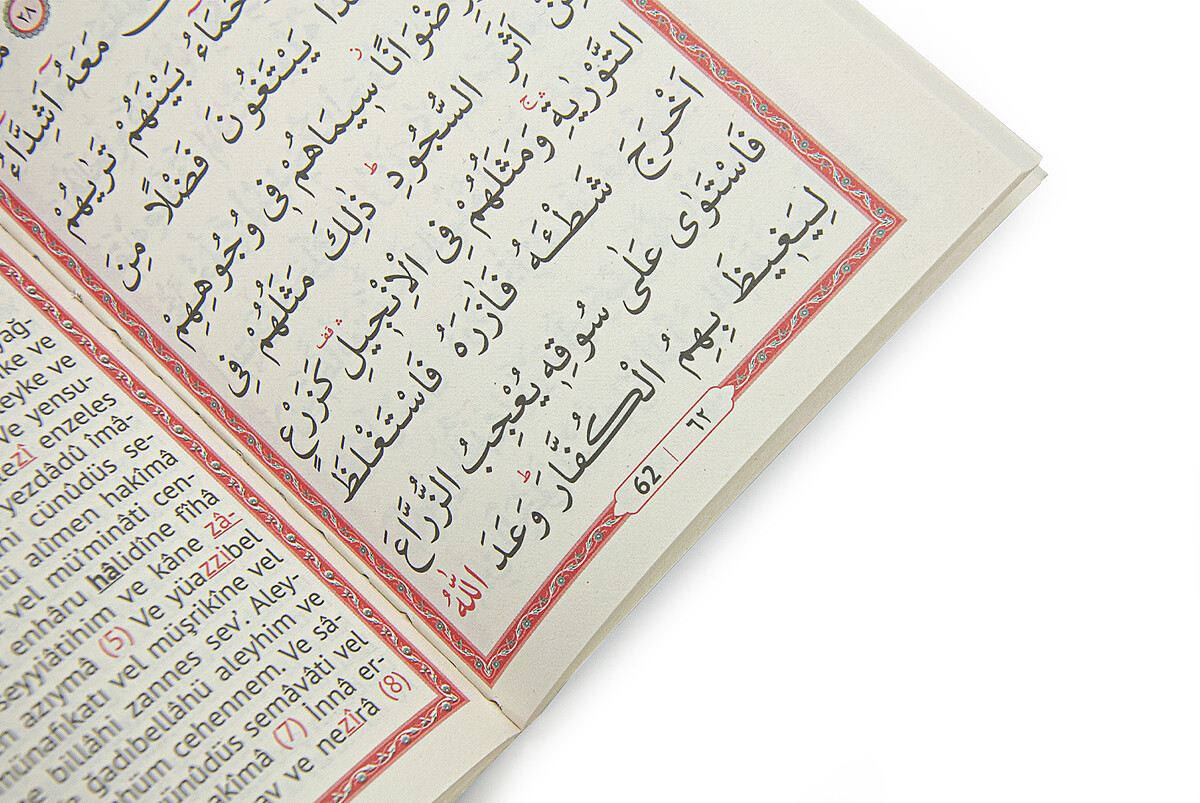 ٢٨
مَعَهُٓ اَشِدَّٓاءُ
بَيْنَهُمْ تَرٰيهُمْ
يَبْتَغُونَ فَضْلًا مِنَ
سِيمَاهُمْ فِى وُجُوهِهِمْ
اَثَرِ السُّجُودِ ذٰلِكَ مَثَلُهُمْ فِى
التَّوْرٰيةِ وَمَثَلُهُمْ فِى الْاِنْجِيلِ كَزَرْعٍ
اَخْرَجَ شَطْـَٔهُ فَاٰزَرَهُ فَاسْتَغْلَظَ
فَاسْتَوٰى عَلٰى سُوقِهٖ يُعْجِبُ الزُّرَّاعَ
لِيَغٖيظَ بِهِمُ الْكُفَّارَ وَعَدَ اللّٰهُ
62 | ٦٢
yağ-
ve
leyke ve
ve yensu-
enzeles
yezdâdû îmâ-
cünûdüs se-
alîmen hakîmâ
vel mü'minâti cen-
enhâru hâlidîne fîhâ
seyyiâtihim ve kâne zâ-
azıymâ (5) Ve yüazzibel
münafikatı vel müşrikîne vel
billâhi zannes sev'. Aley-
ğadıbellâhü aleyhim ve
cehennem. Ve sâ-
cünûdüs semâvâti vel
hakîmâ (7) İnnâ er-
ve nezîrâ (8)